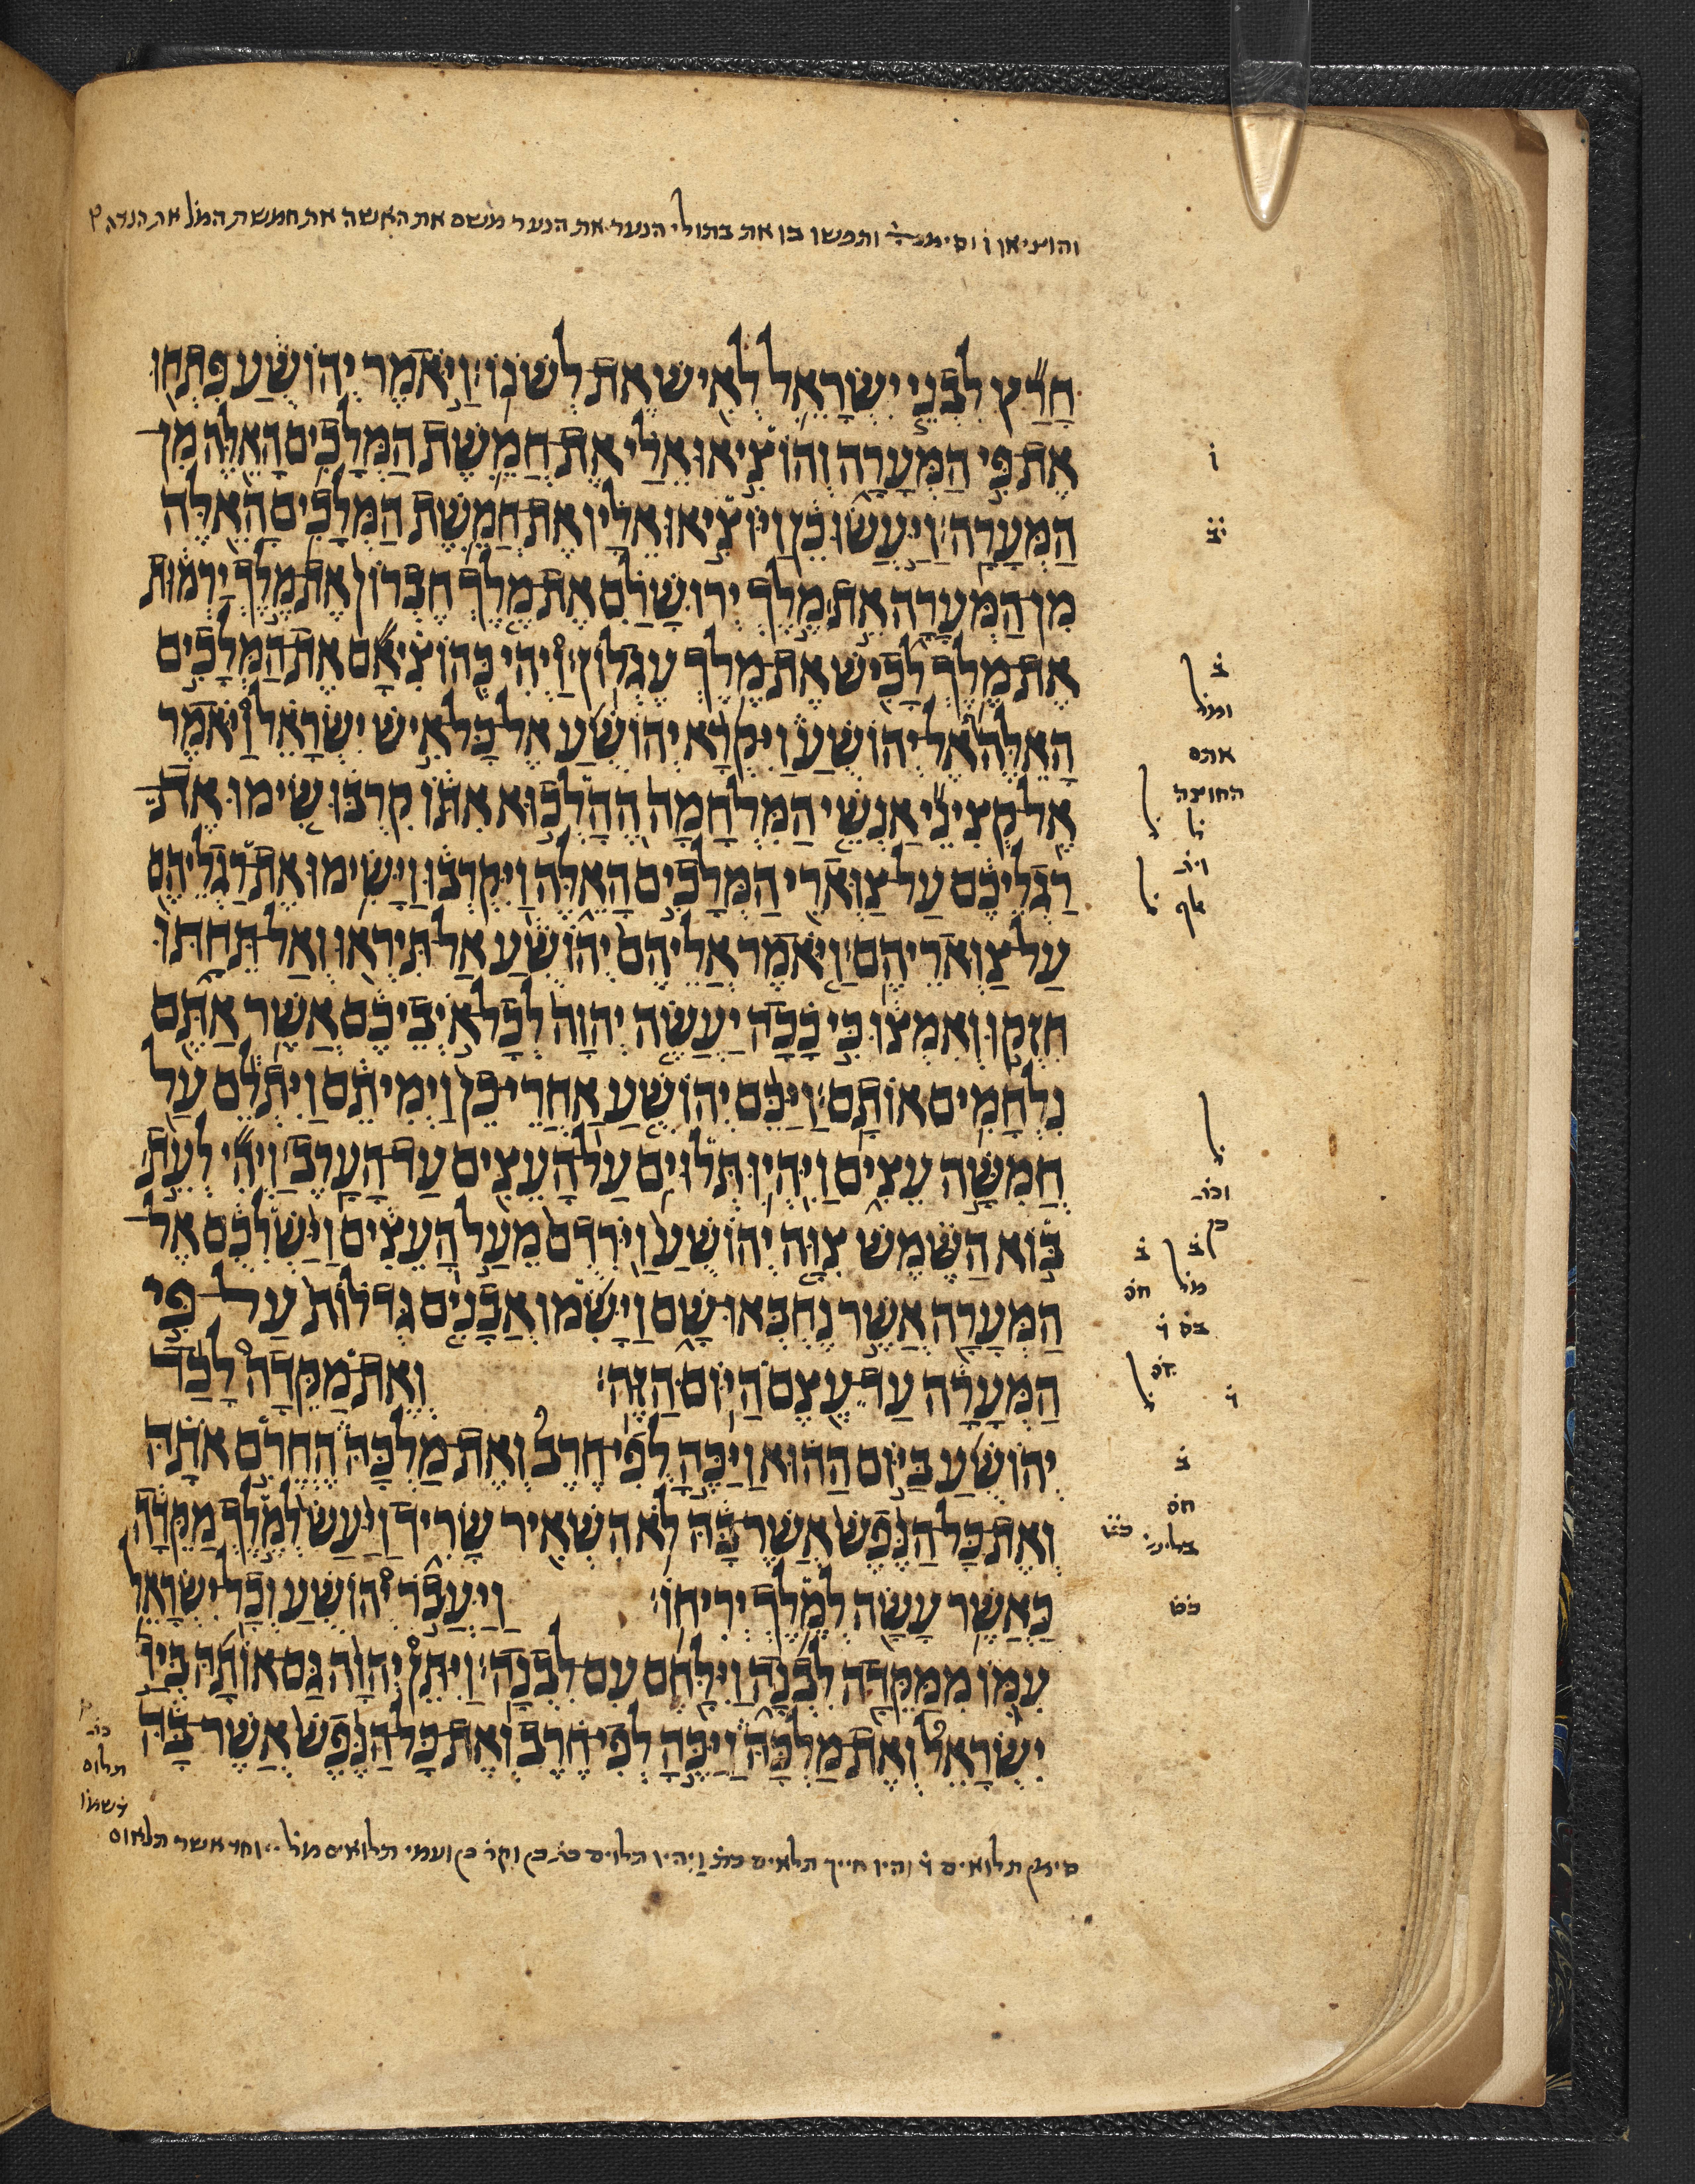 והוציאו ו וסימנ ותפשו בו את בתולי הנער את הנער משם את האשה את חמשת המל
חָרַץ לִבְנֵי יִשְׂרָאֵל לְאִישׁ אֶת לְשֹׁנוֹ׃ וַיֹּאמֶר יְהוֹשֻׁעַ פִּתְחוּ
אֶת פִּי הַמְּעָרָה וְהוֹצִיאוּ אֵלַי אֶת חֲמֵשֶׁת הַמְּלָכִים הָאֵלֶּה מִן
הַמְּעָרָה׃ וַיַּעֲשׂוּ כֵן וַיּוֹצִיאוּ אֵלָיו אֶת חֲמֵשֶׁת הַמְּלָכִים הָאֵלֶּה
מִן הַמְּעָרָה אֵת מֶלֶךְ יְרוּשָׁלִַם אֶת מֶלֶךְ חֶבְרוֹן אֶת מֶלֶךְ יַרְמוּת
אֶת מֶלֶךְ לָכִישׁ אֶת מֶלֶךְ עֶגְלוֹן׃ וַיְהִי כְּהוֹצִיאָם אֶת הַמְּלָכִים
הָאֵלֶּה אֶל יְהוֹשֻׁעַ וַיִּקְרָא יְהוֹשֻׁעַ אֶל כָּל אִישׁ יִשְׂרָאֵל וַיֹּאמֶר
אֶל קְצִינֵי אַנְשֵׁי הַמִּלְחָמָה הֶהָלְכוּא אִתּוֹ קִרְבוּ שִׂימוּ אֶת
רַגְלֵיכֶם עַל צַוְּארֵי הַמְּלָכִים הָאֵלֶּה וַיִּקְרְבוּ וַיָּשִׂימוּ אֶת רַגְלֵיהֶם
עַל צַוְּארֵיהֶם׃ וַיֹּאמֶר אֲלֵיהֶם יְהוֹשֻׁעַ אַל תִּירְאוּ וְאַל תֵּחַתּוּ
חִזְקוּ וְאִמְצוּ כִּי כָכָה יַעֲשֶׂה יְהוָה לְכָל אֹיְבֵיכֶם אֲשֶׁר אַתֶּם
נִלְחָמִים אוֹתָם׃ וַיַּכֵּם יְהוֹשֻׁעַ אַחֲרֵי כֵן וַיְמִיתֵם וַיִּתְלֵם עַל
חֲמִשָּׁה עֵצִים וַיִּהְיוּ תְּלוּיִם עַל הָעֵצִים עַד הָעָרֶב׃ וַיְהִי לְעֵת
בּוֹא הַשֶּׁמֶשׁ צִוָּה יְהוֹשֻׁעַ וַיֹּרִדֻם מֵעַל הָעֵצִים וַיַּשְׁלִכֻם אֶל
הַמְּעָרָה אֲשֶׁר נֶחְבְּאוּ שָׁם וַיָּשִׂמוּ אֲבָנִים גְּדֹלוֹת עַל פִּי
הַמְּעָרָה עַד עֶצֶם הַיּוֹם הַזֶּה׃ וְאֶת מַקֵּדָה לָכַד
יְהוֹשֻׁעַ בַּיּוֹם הַהוּא וַיַּכֶּהָ לְפִי חֶרֶב וְאֶת מַלְכָּהּ הֶחֱרִם אֹתָהּ
וְאֶת כָּל הַנֶּפֶשׁ אֲשֶׁר בָּהּ לֹא הִשְׁאִיר שָׂרִיד וַיַּעַשׂ לְמֶלֶךְ מַקֵּדָה
כַּאֲשֶׁר עָשָׂה לְמֶלֶךְ יְרִיחוֹ׃ וַיַּעֲבֹר יְהוֹשֻׁעַ וְכָל יִשְׂרָאֵל
עִמּוֹ מִמַּקֵּדָה לִבְנָה וַיִּלָּחֶם עִם לִבְנָה׃ וַיִּתֵּן יְהוָה גַּם אוֹתָהּ בְּיַד
יִשְׂרָאֵל וְאֶת מַלְכָּהּ וַיַּכֶּהָ לְפִי חֶרֶב וְאֶת כָּל הַנֶּפֶשׁ אֲשֶׁר בָּהּ
ו
יב
ב
אתם
החוצה
ל
אלף
ל
ב
ב
חס
ב
חס
תלוים
תלואים והיו חייך תלאים וַיהיו תלוים ועמי תלואים אשר תלאום